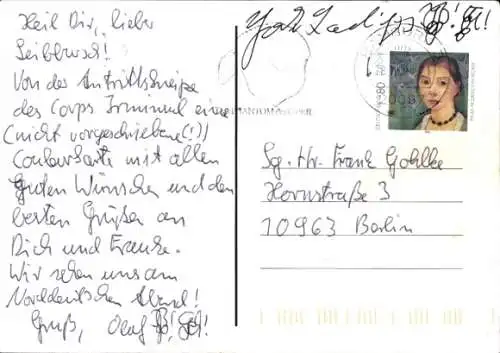 Heil Dir, lieber
Leibbursch!
Von der Antrittskneipe
des Corps Irminsul eine
(nicht vorgeschriebene!))
Couleurkarte mit allen
guten Wünschen und den
besten Grüßen an
Dich und Frauke.
Wir sehen uns am
Norddeutschen Abend!
Gruß, Olaf
Sg. Hr. Frank Gohlke
Hornstraße 3
10963 Berlin